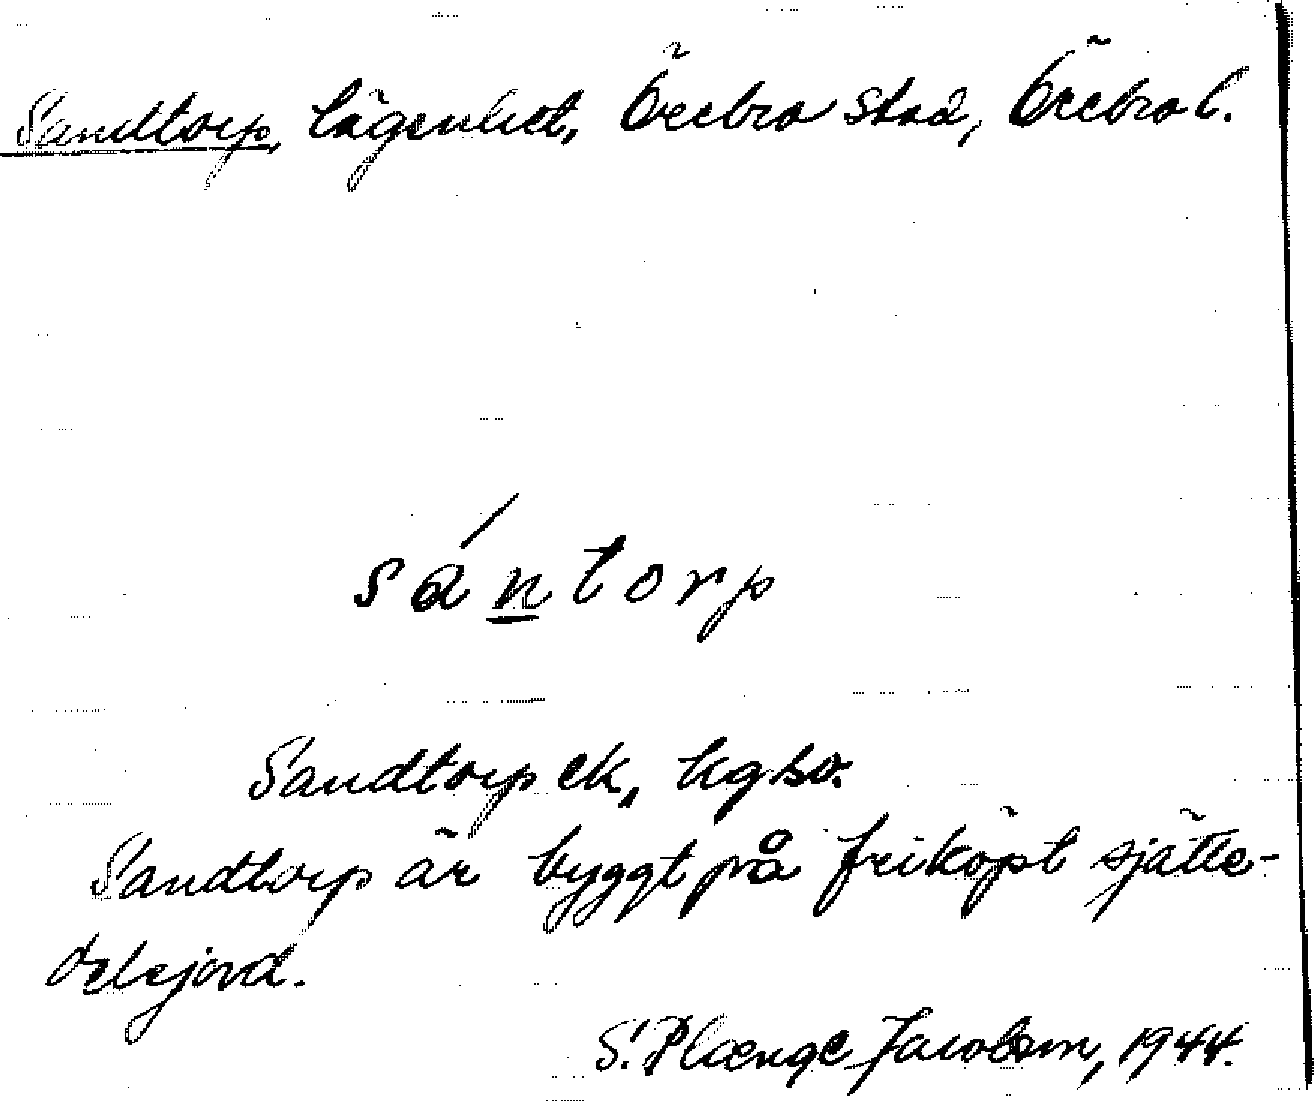 Sandtorp, lägenhet, Örebro stad, Örebro l.
sántorp
Sandtorp ek, hgsv.
Sandtorp är byggt på friköpt sjätte-
delsjord.
S. Plænge Jacobson, 1944.